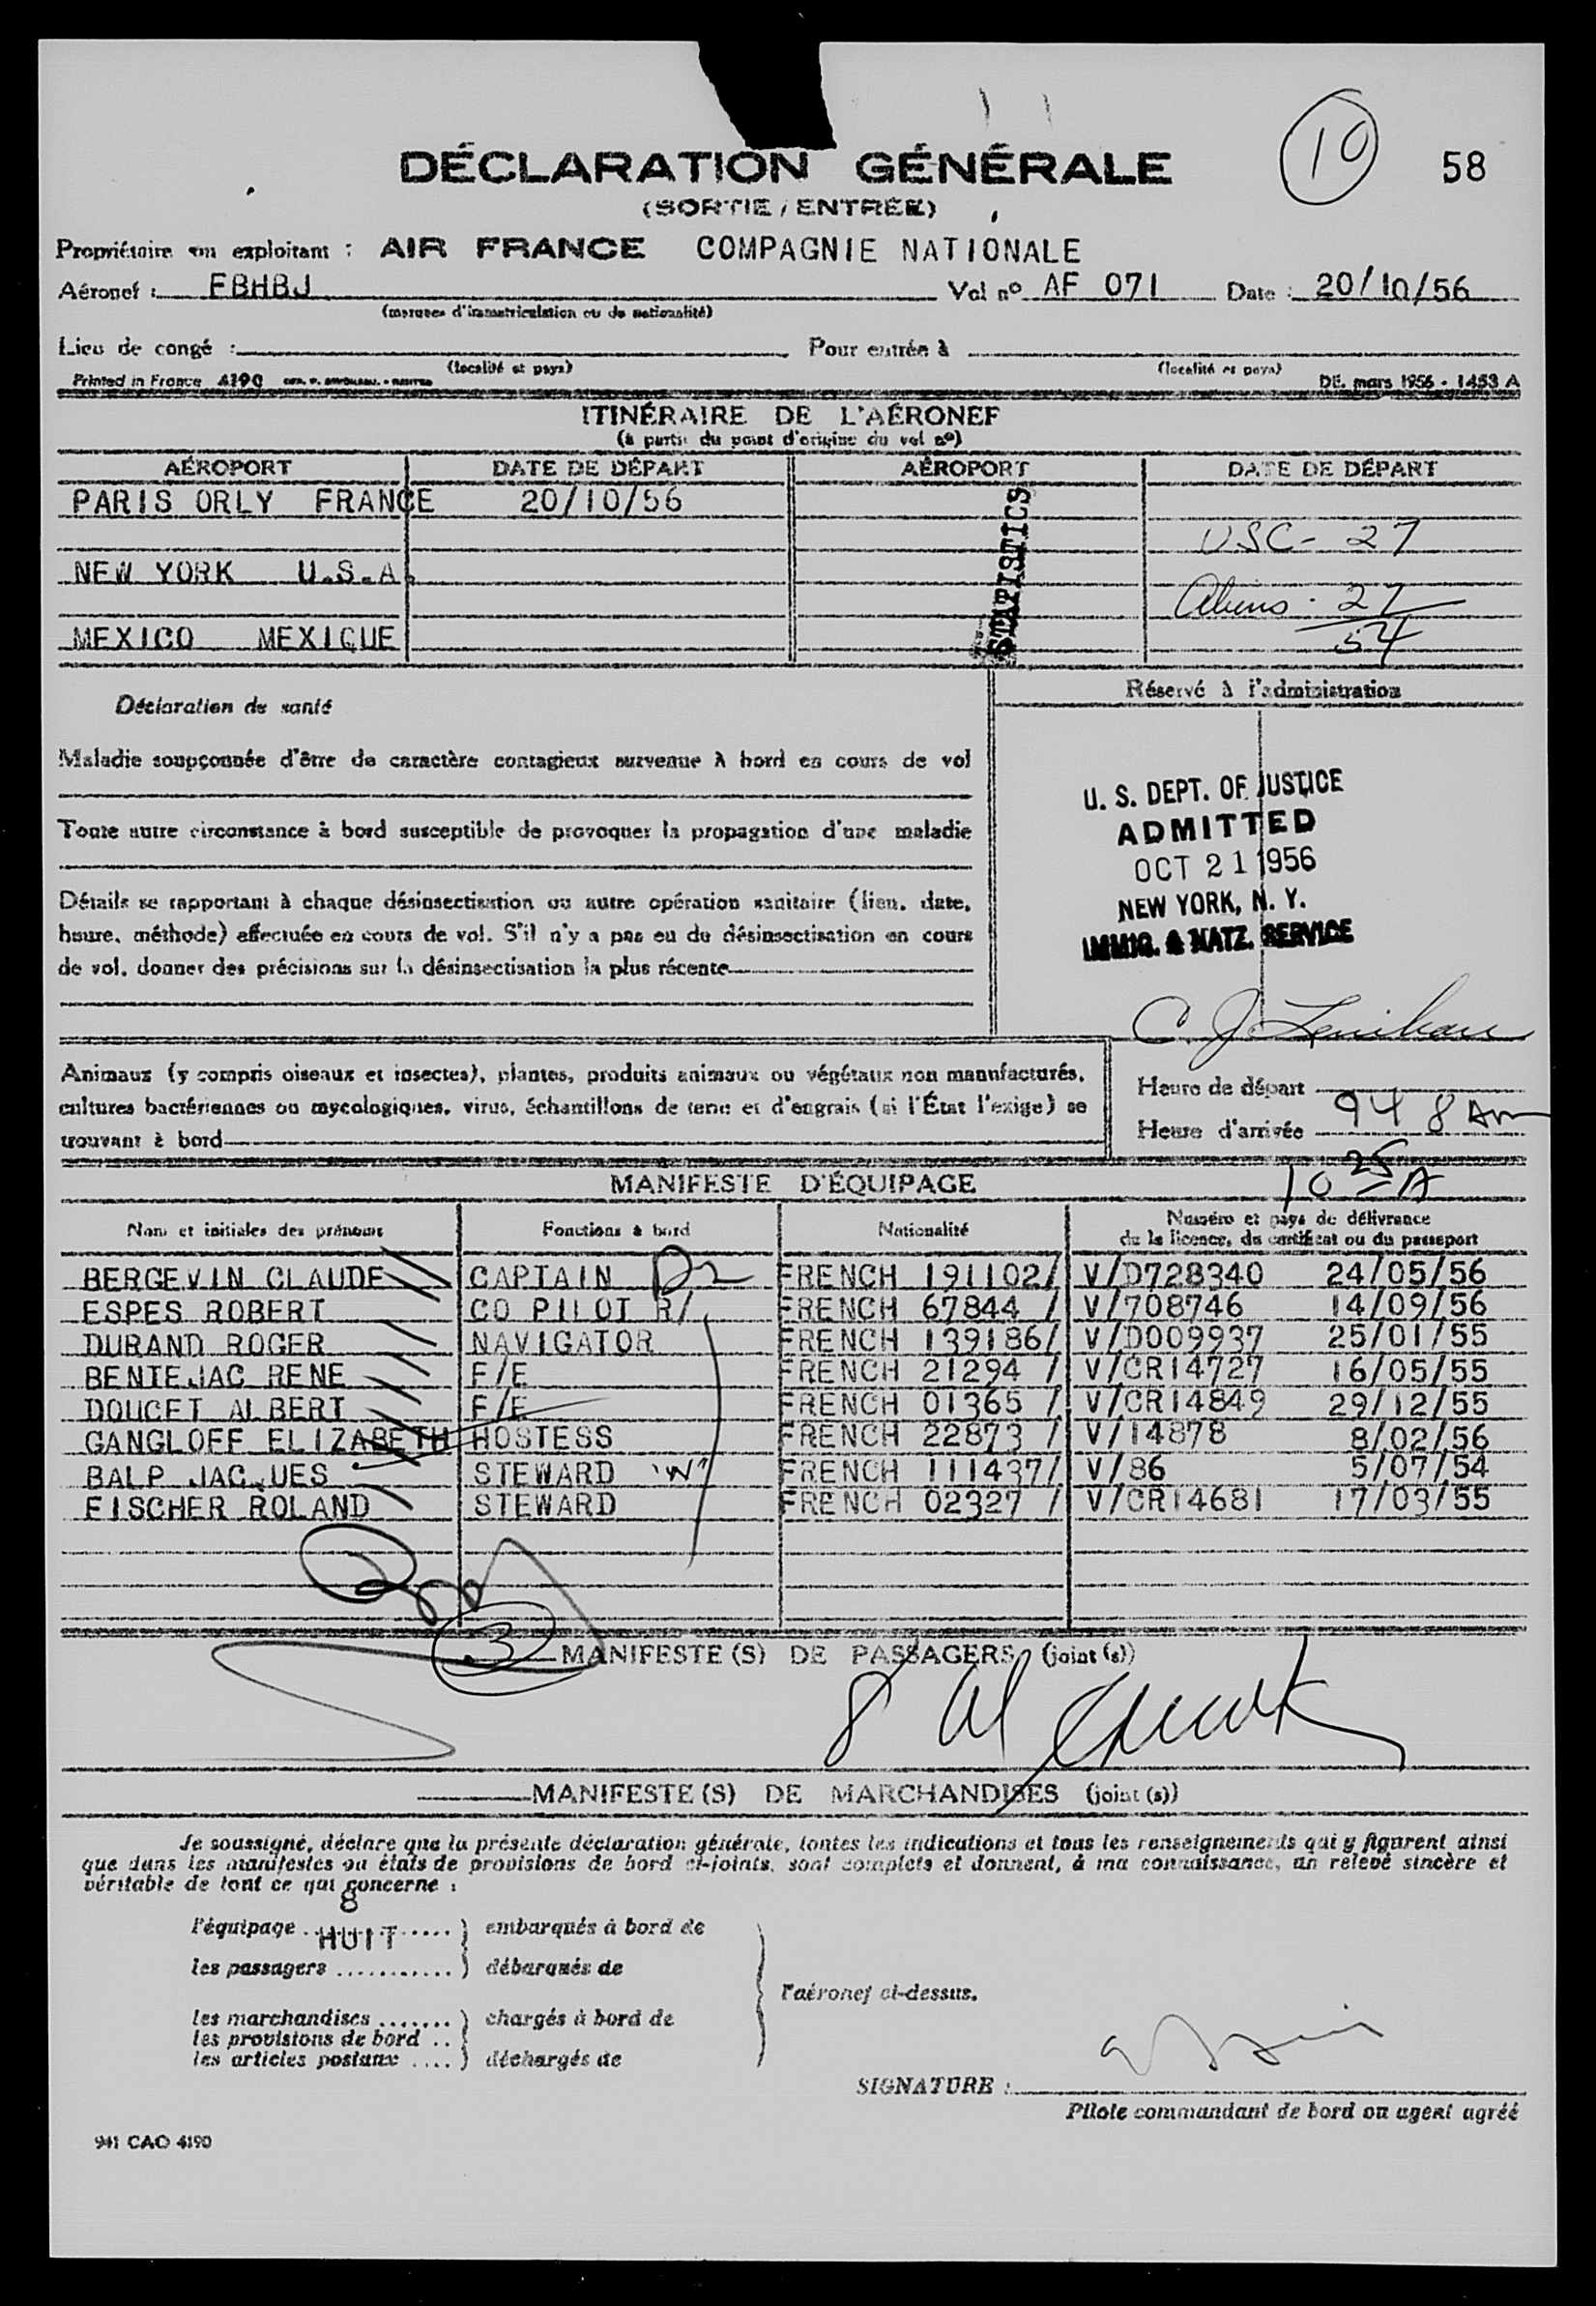 DÉCLARATION GÉNÉRALE
10
58
(SORTIE / ENTRÉE)
Propriétaire ou exploitant : AIR FRANCE COMPAGNIE NATIONALE
Aéronef : FBHBJ Vol nº AF 071 Date : 20/10/56
(marques d'immatriculation ou de nationalité)
Lieu de congé : Pour entrée à
(localité et pays) (localité et pays)
Printed in France 4190 DE. mars 1956 - 1453 A
ITINÉRAIRE DE L'AÉRONEF
(à partir du point d'origine du vol nº)
AÉROPORT DATE DE DÉPART AÉROPORT DATE DE DÉPART
PARIS ORLY FRANCE 20/10/56
USC - 27
NEW YORK U.S.A.
Aliens - 27
54
MEXICO MEXIQUE
STATISTICS
Déclaration de santé
Réservé à l'administration
Maladie soupçonnée d'être de caractère contagieux survenue à bord en cours de vol
Toute autre circonstance à bord susceptible de provoquer la propagation d'une maladie
Détails se rapportant à chaque désinsectisation ou autre opération sanitaire (lieu, date,
heure, méthode) effectuée en cours de vol. S'il n'y a pas eu de désinsectisation en cours
de vol, donner des précisions sur la désinsectisation la plus récente
U. S. DEPT. OF JUSTICE
ADMITTED
OCT 21 1956
NEW YORK, N. Y.
IMMIG. & NATZ. SERVICE
C. J. Lenihan
Animaux (y compris oiseaux et insectes), plantes, produits animaux ou végétaux non manufacturés,
cultures bactériennes ou mycologiques, virus, échantillons de terre et d'engrais (si l'État l'exige) se
trouvant à bord
Heure de départ
Heure d'arrivée 948 Am
10 25 A
MANIFESTE D'ÉQUIPAGE
Nom et initiales des prénoms Fonctions à bord Nationalité Numéro et pays de délivrance
de la licence, du certificat ou du passeport
BERGEVIN CLAUDE CAPTAIN FRENCH 191102/ V/D728340 24/05/56
ESPES ROBERT CO PILOT R/ FRENCH 67844 / V/708746 14/09/56
DURAND ROGER NAVIGATOR FRENCH 139186/ V/D009937 25/01/55
BENTEJAC RENE F/E FRENCH 21294 / V/CR14727 16/05/55
DOUCET ALBERT F/E FRENCH 01365 / V/CR14849 29/12/55
GANGLOFF ELIZABETH HOSTESS FRENCH 22873 / V/14878 8/02/56
BALP JACQUES STEWARD "N" FRENCH 111437/ V/86 5/07/54
FISCHER ROLAND STEWARD FRENCH 02327 / V/CR14681 17/03/55
3 MANIFESTE (S) DE PASSAGERS (joint (s))
8
MANIFESTE (S) DE MARCHANDISES (joint (s))
Je soussigné, déclare que la présente déclaration générale, toutes les indications et tous les renseignements qui y figurent ainsi
que dans les manifestes ou états de provisions de bord ci-joints, sont complets et donnent, à ma connaissance, un relevé sincère et
véritable de tout ce qui concerne :
8
l'équipage HUIT } embarqués à bord de
les passagers ........... } débarqués de
l'aéronef ci-dessus.
les marchandises ....... } chargés à bord de
les provisions de bord ..
les articles postaux .... } déchargés de
SIGNATURE :
Pilote commandant de bord ou agent agréé
941 CAO 4190